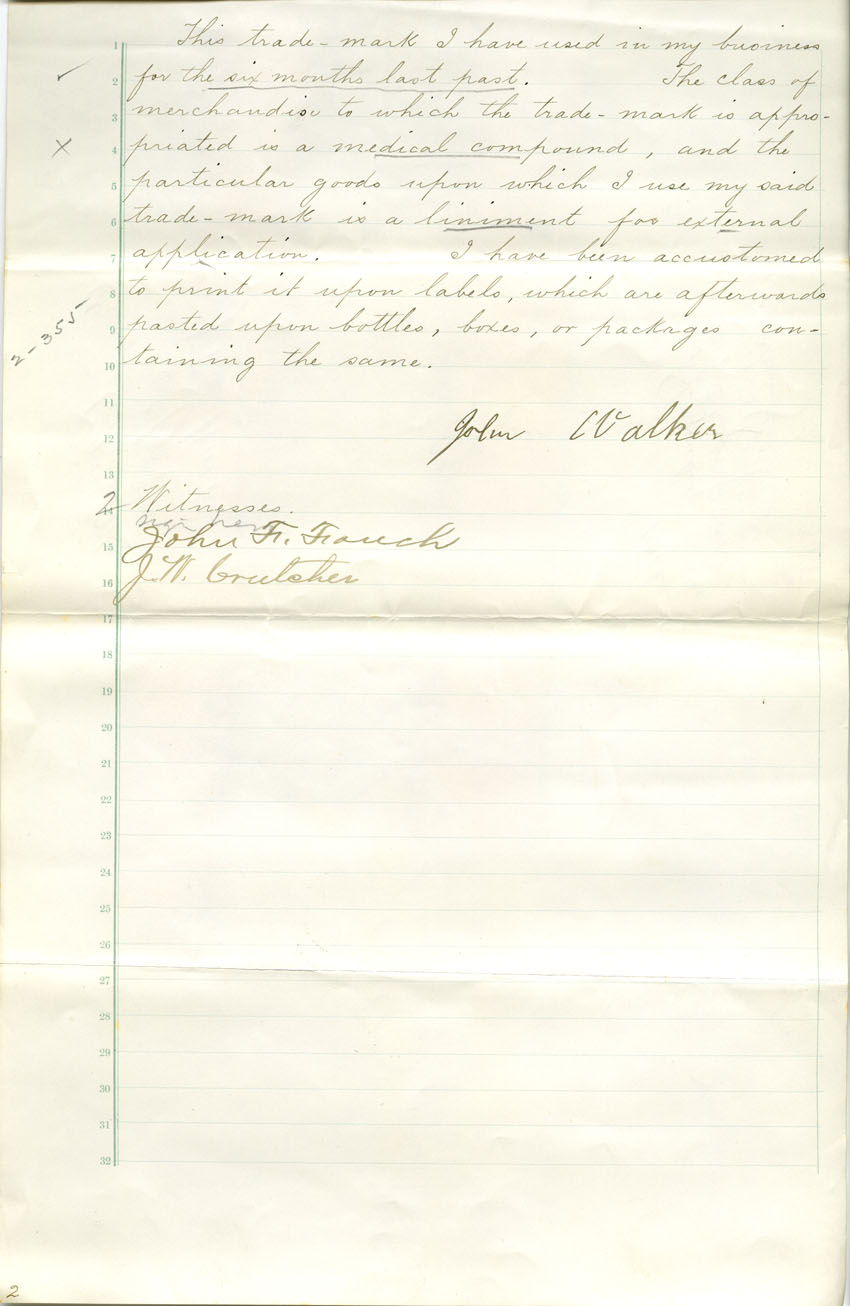 This trade-mark I have used in my business
for the six months last past. The class of
merchandise to which the trade-mark is appro-
priated is a medical compound, and the
particular goods upon which I use my said
trade-mark is a liniment for external
application. I have been accustomed
to print it upon labels, which are afterwards
pasted upon bottles, boxes, or packages con-
taining the same.
2-355
John Walker
2 Witnesses.
John F.
J. W. Crutcher
1
2
3
4
5
6
7
8
9
10
11
12
13
14
15
16
17
18
19
20
21
22
23
24
25
26
27
28
29
30
31
32
2